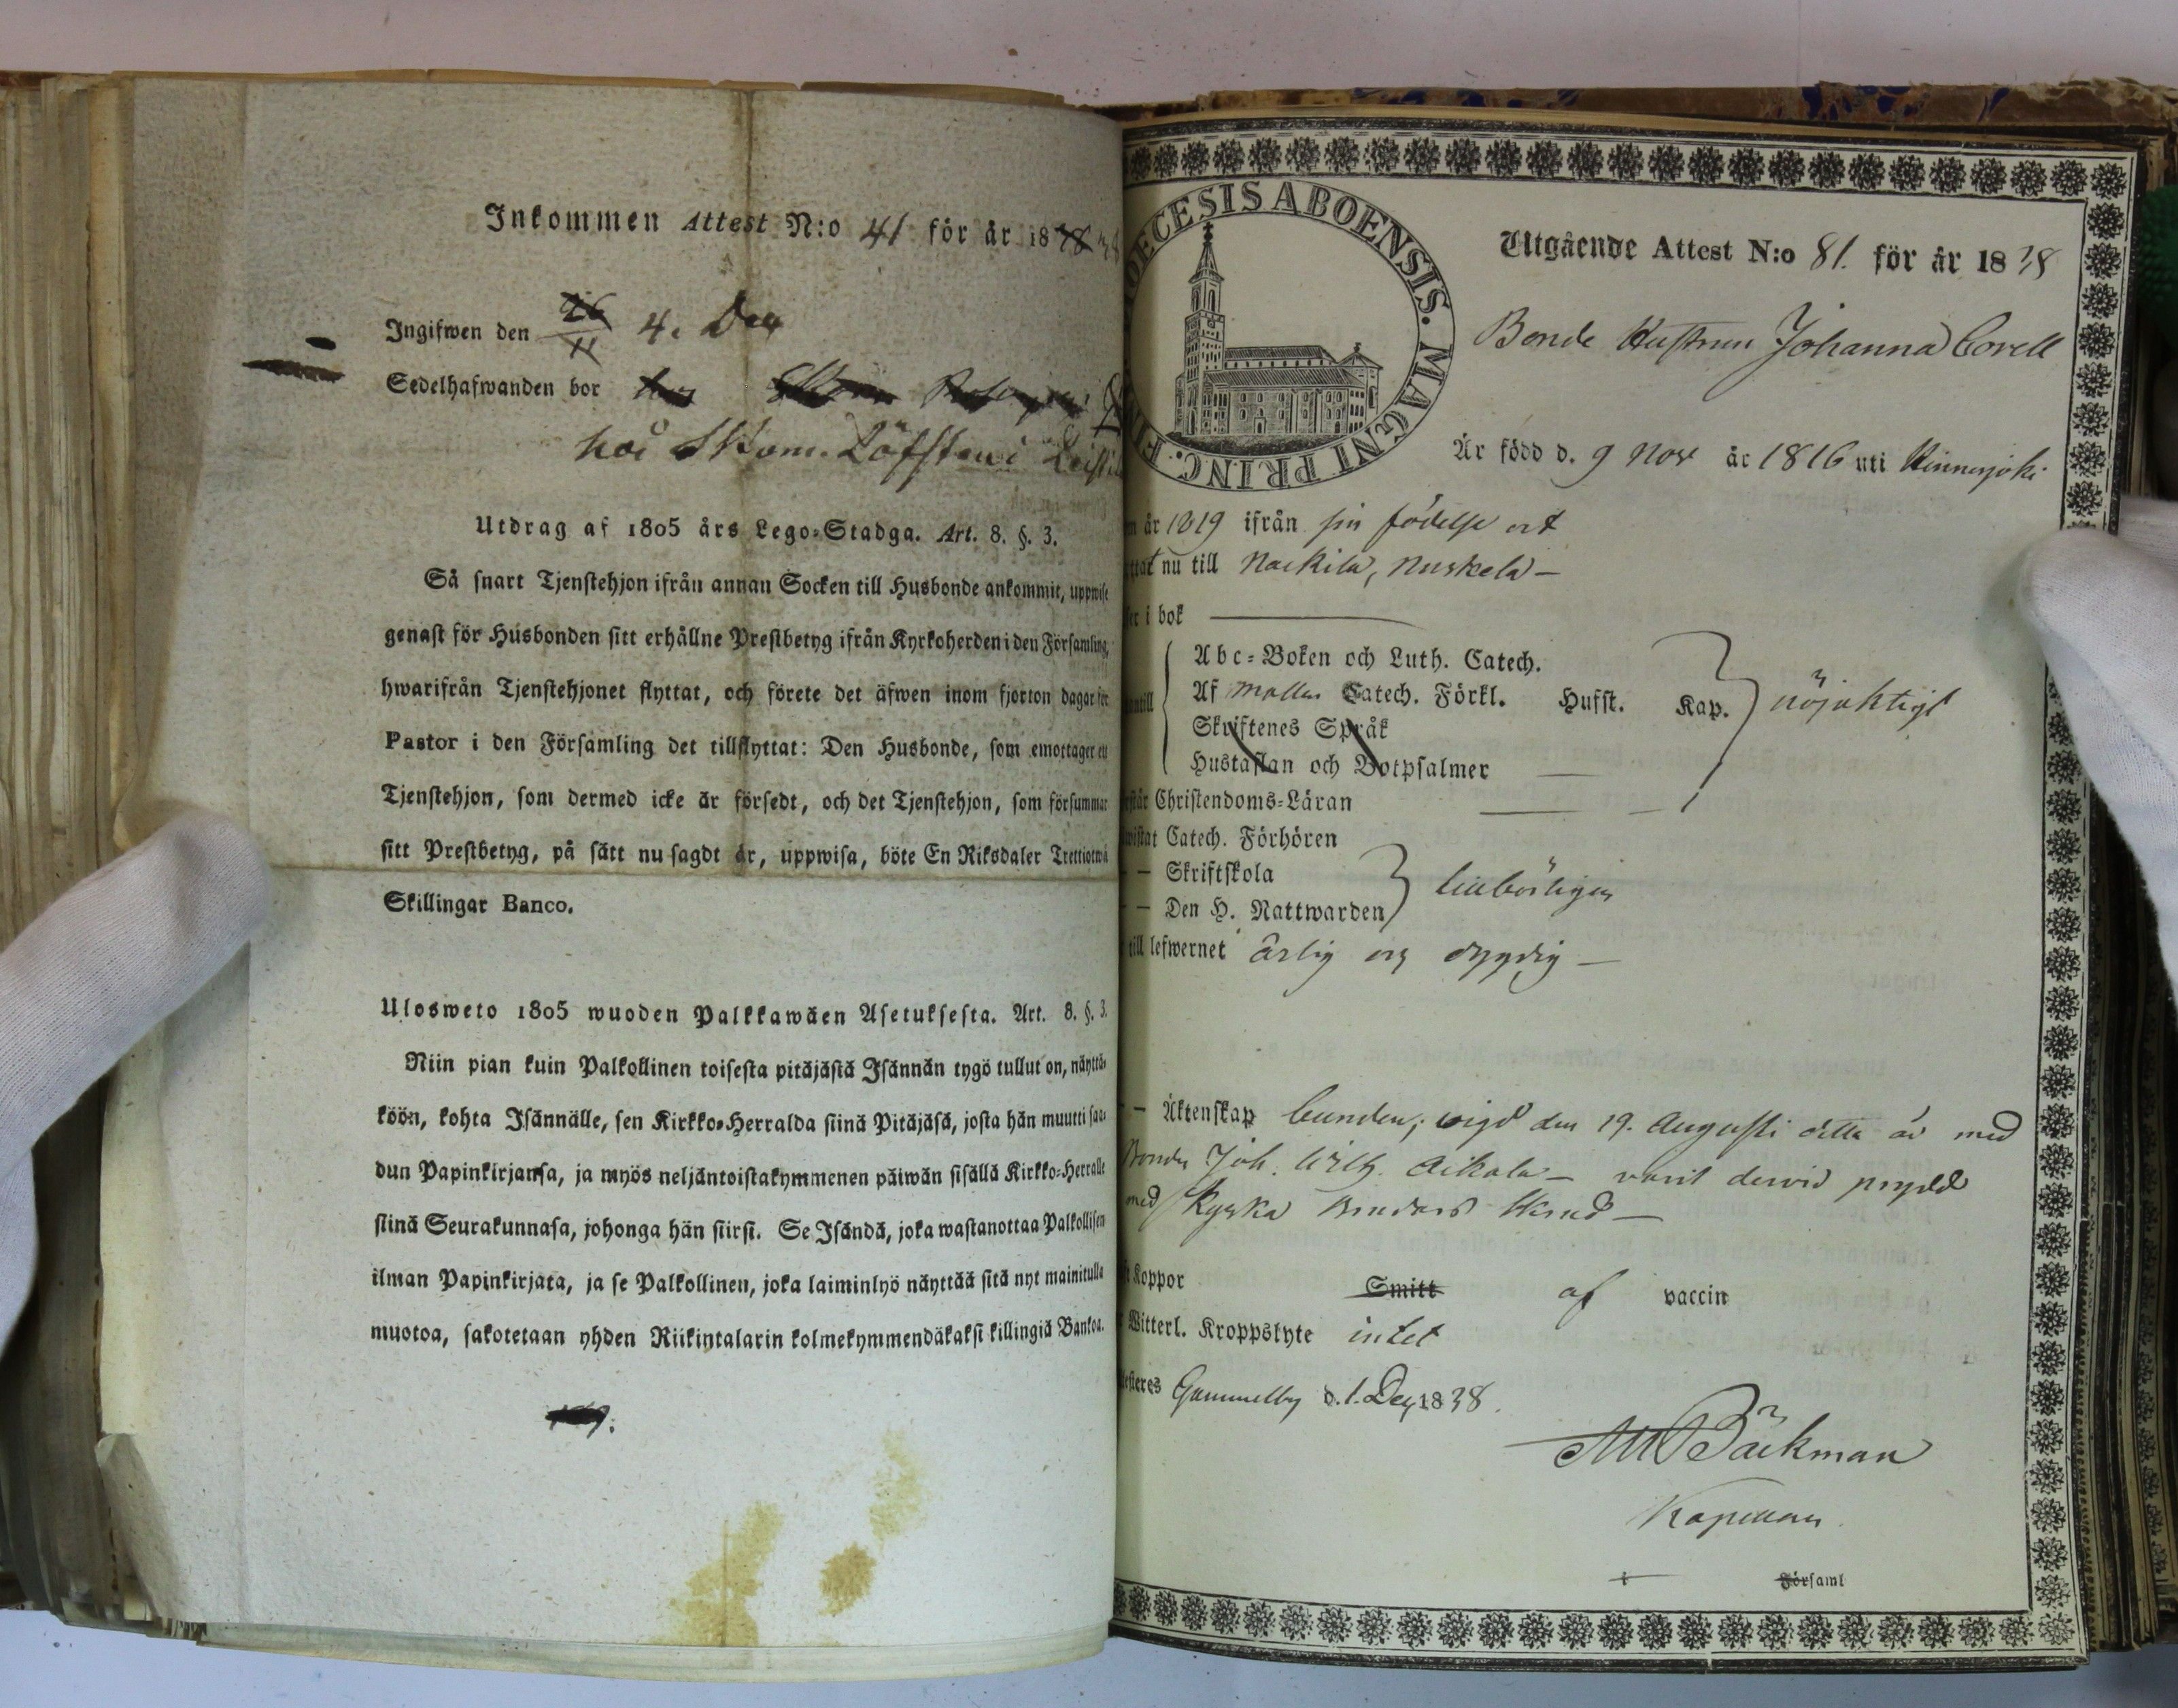 Inkommen Attest N:o 41 för år 18 38
Ingifwen den 4. Dec
Sedelhafwanden bor
hos Skom. Löfsten i
Utdrag af 1805 års Lego-Stadga. Art. 8. §. 3.
Så snart Tjenstehjon ifrån annan Socken till Husbonde ankommit, uppwise
genast för Husbonden sitt erhållne Prestbetyg ifrån Kyrkoherden i den Församling,
hwarifrån Tjenstehjonet flyttat, och förete det äfwen inom fjorton dagar för
Pastor i den Församling det tillflyttat: Den Husbonde, som emottager ett
Tjenstehjon, som dermed icke är försedt, och det Tjenstehjon, som försummar
sitt Prestbetyg, på sätt nu sagdt är, uppwisa, böte En Riksdaler Trettiotwå
Skillingar Banco.
Ulosweto 1805 wuoden Palkkawäen Asetuksesta. Art. 8. §. 3.
Niin pian kuin Palkollinen toisesta pitäjästä Isännän tygö tullut on, näyttä-
köön, kohta Isännälle, sen Kirkko-Herralda siinä Pitäjäsä, josta hän muutti saa-
dun Papinkirjansa, ja myös neljäntoistakymmenen päiwän sisällä Kirkko-Herralle
siinä Seurakunnasa, johonga hän siirsi. Se Isändä, joka wastanottaa Palkollisen
ilman Papinkirjata, ja se Palkollinen, joka laiminlyö näyttää sitä nyt mainitulla
muotoa, sakotetaan yhden Riikintalarin kolmekymmendäkaksi killingiä Bankoa.
DIOECESIS ABOENSIS. MAGNI PRINC. FIN
Utgående Attest N:o 81. för år 1838
Bonde Hustrun Johanna Corell
Är född d. 9 Nov år 1816 uti Kinnerjoki
n år 1819 ifrån sin födelse ort
ttat nu till Nackila, Nuskela —
ser i bok
Abc-Boken och Luth. Catech.
Af Mollers Catech. Förkl. Husst. Kap. nöjaktigt
Skriftenes Språk
Hustaflan och Botpsalmer
rstår Christendoms-Läran
wistat Catech. Förhören
— Skriftskola
— Den H. Nattwarden tillbörligen
till lefwernet ärlig och dygdig —
— Äktenskap bunden; wigd den 19. Augusti detta år med
Bonden Joh. Wilh. Aikala — varit dervid prydd
med kyska Bruders skrud —
t Koppor Smitt af vaccin
Witterl. Kroppslyte intet
testeres Gammelby d. 1. Dec 1838.
Bäckman
Kapellan.
i Församl